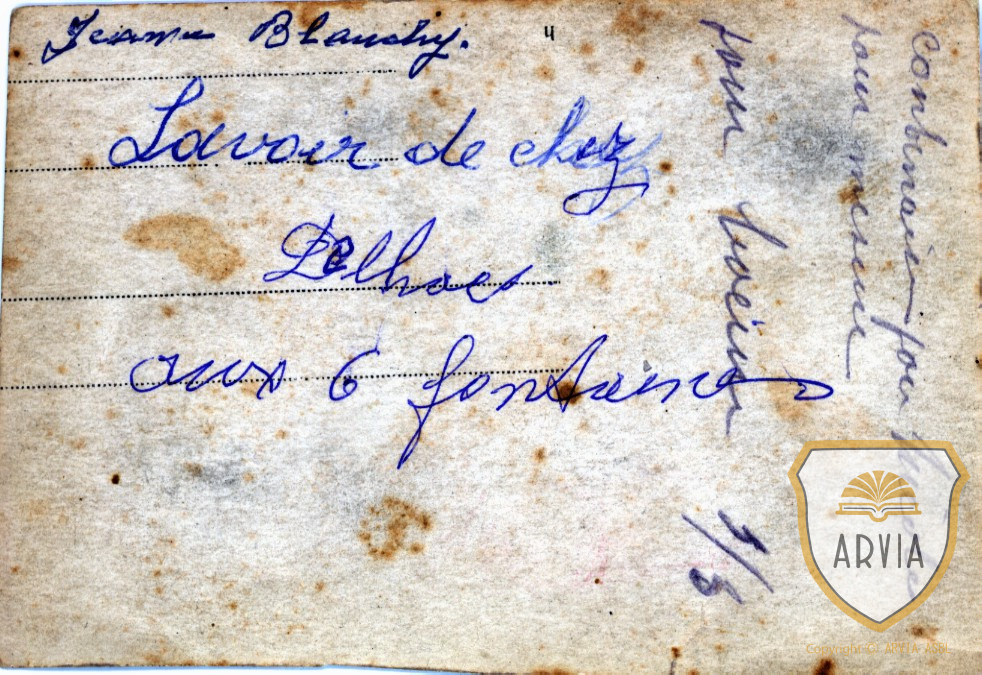 Jeanne Blanchy.
4
Lavoir de chez
Delhaes
aux 6 fontaines
Contremaître pour
pour mesure
pour
1/5
ARVIA
Copyright © ARVIA ASBL